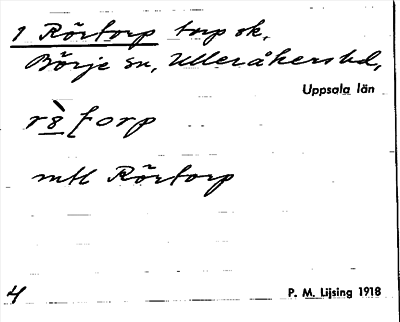 1 Rörtorp torp sk.
Börje sn, Ulleråkers hd,
Uppsala län
mtl Rörtorp
4 P. M. Lijsing 1918